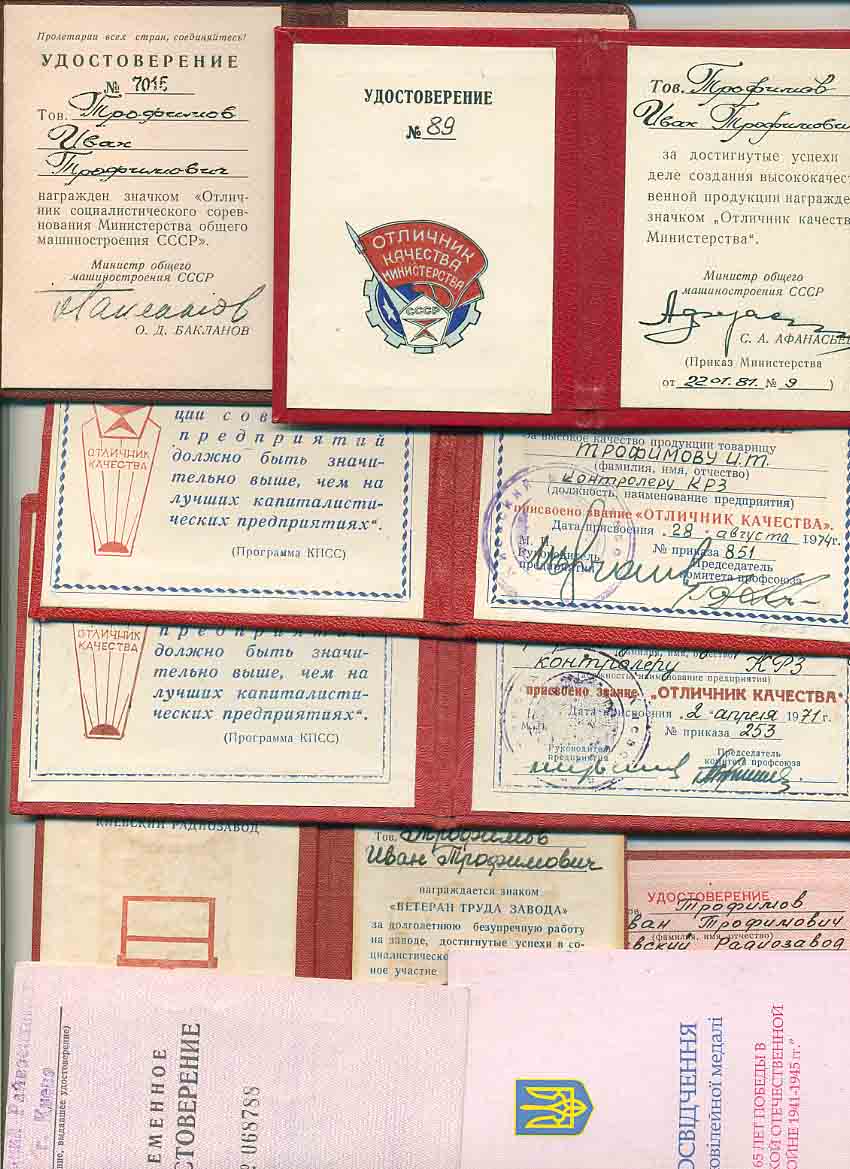 Пролетарии всех стран, соединяйтесь!
УДОСТОВЕРЕНИЕ
№ 7015
Тов. Трофимов
Иван
Трофимович
награжден значком «Отлич-
ник социалистического сорев-
нования Министерства общего
машиностроения СССР».
Министр общего
машиностроения СССР
О. Д. БАКЛАНОВ
УДОСТОВЕРЕНИЕ
№ 89
ОТЛИЧНИК
КАЧЕСТВА
МИНИСТЕРСТВА
СССР
Тов. Трофимов
Иван Трофимович
за достигнутые успехи
деле создания высококачест
венной продукции награжде
значком „Отличник качеств
Министерства".
Министр общего
машиностроения СССР
С. А. АФАНАСЬЕВ
(Приказ Министерства
от 22.01.81. № 9 )
ОТЛИЧНИК
КАЧЕСТВА
ции сов
предприятий
должно быть значи-
тельно выше, чем на
лучших капиталисти-
ческих предприятиях".
(Программа КПСС)
за высокое качество продукции товарищу
ТРОФИМОВУ И.Т.
(фамилия, имя, отчество)
контролеру КРЗ
(должность, наименование предприятия)
присвоено звание «ОТЛИЧНИК КАЧЕСТВА».
Дата присвоения 28 августа 1974г.
М. П. № приказа 851
Руководитель предприятия
Председатель комитета профсоюза
ОТЛИЧНИК
КАЧЕСТВА
предприятий
должно быть значи-
тельно выше, чем на
лучших капиталисти-
ческих предприятиях".
(Программа КПСС)
контролеру КРЗ
(должность, наименование предприятия)
присвоено звание „ОТЛИЧНИК КАЧЕСТВА"
Дата присвоения 2 апреля 1971г.
М.П. № приказа 253
Руководитель предприятия
Председатель комитета профсоюза
КИЕВСКИЙ РАДИОЗАВОД
Тов. Трофимов
Иван Трофимович
награждается знаком
«ВЕТЕРАН ТРУДА ЗАВОДА»
за долголетнюю безупречную работу
на заводе, достигнутые успехи в со-
циалистическо
ное участие
УДОСТОВЕРЕНИЕ
Трофимов
ван Трофимович
(фамилия, имя, отчество)
евский Радиозавод
г. Киева
ние, выдавшее удостоверение)
ЕМЕННОЕ
СТОВЕРЕНИЕ
№ 068788
ОСВІДЧЕННЯ
ювілейної медалі
65 ЛЕТ ПОБЕДЫ В
ОЙ ОТЕЧЕСТВЕННОЙ
ОЙНЕ 1941-1945 гг."